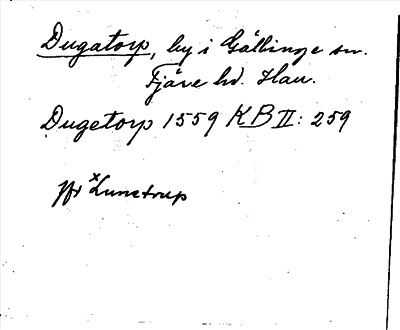 Dugatorp, by i Gällinge sn.
Fjäre hd. Hall.
Dugetorp 1559 KB II: 259
jfr xLunetrup